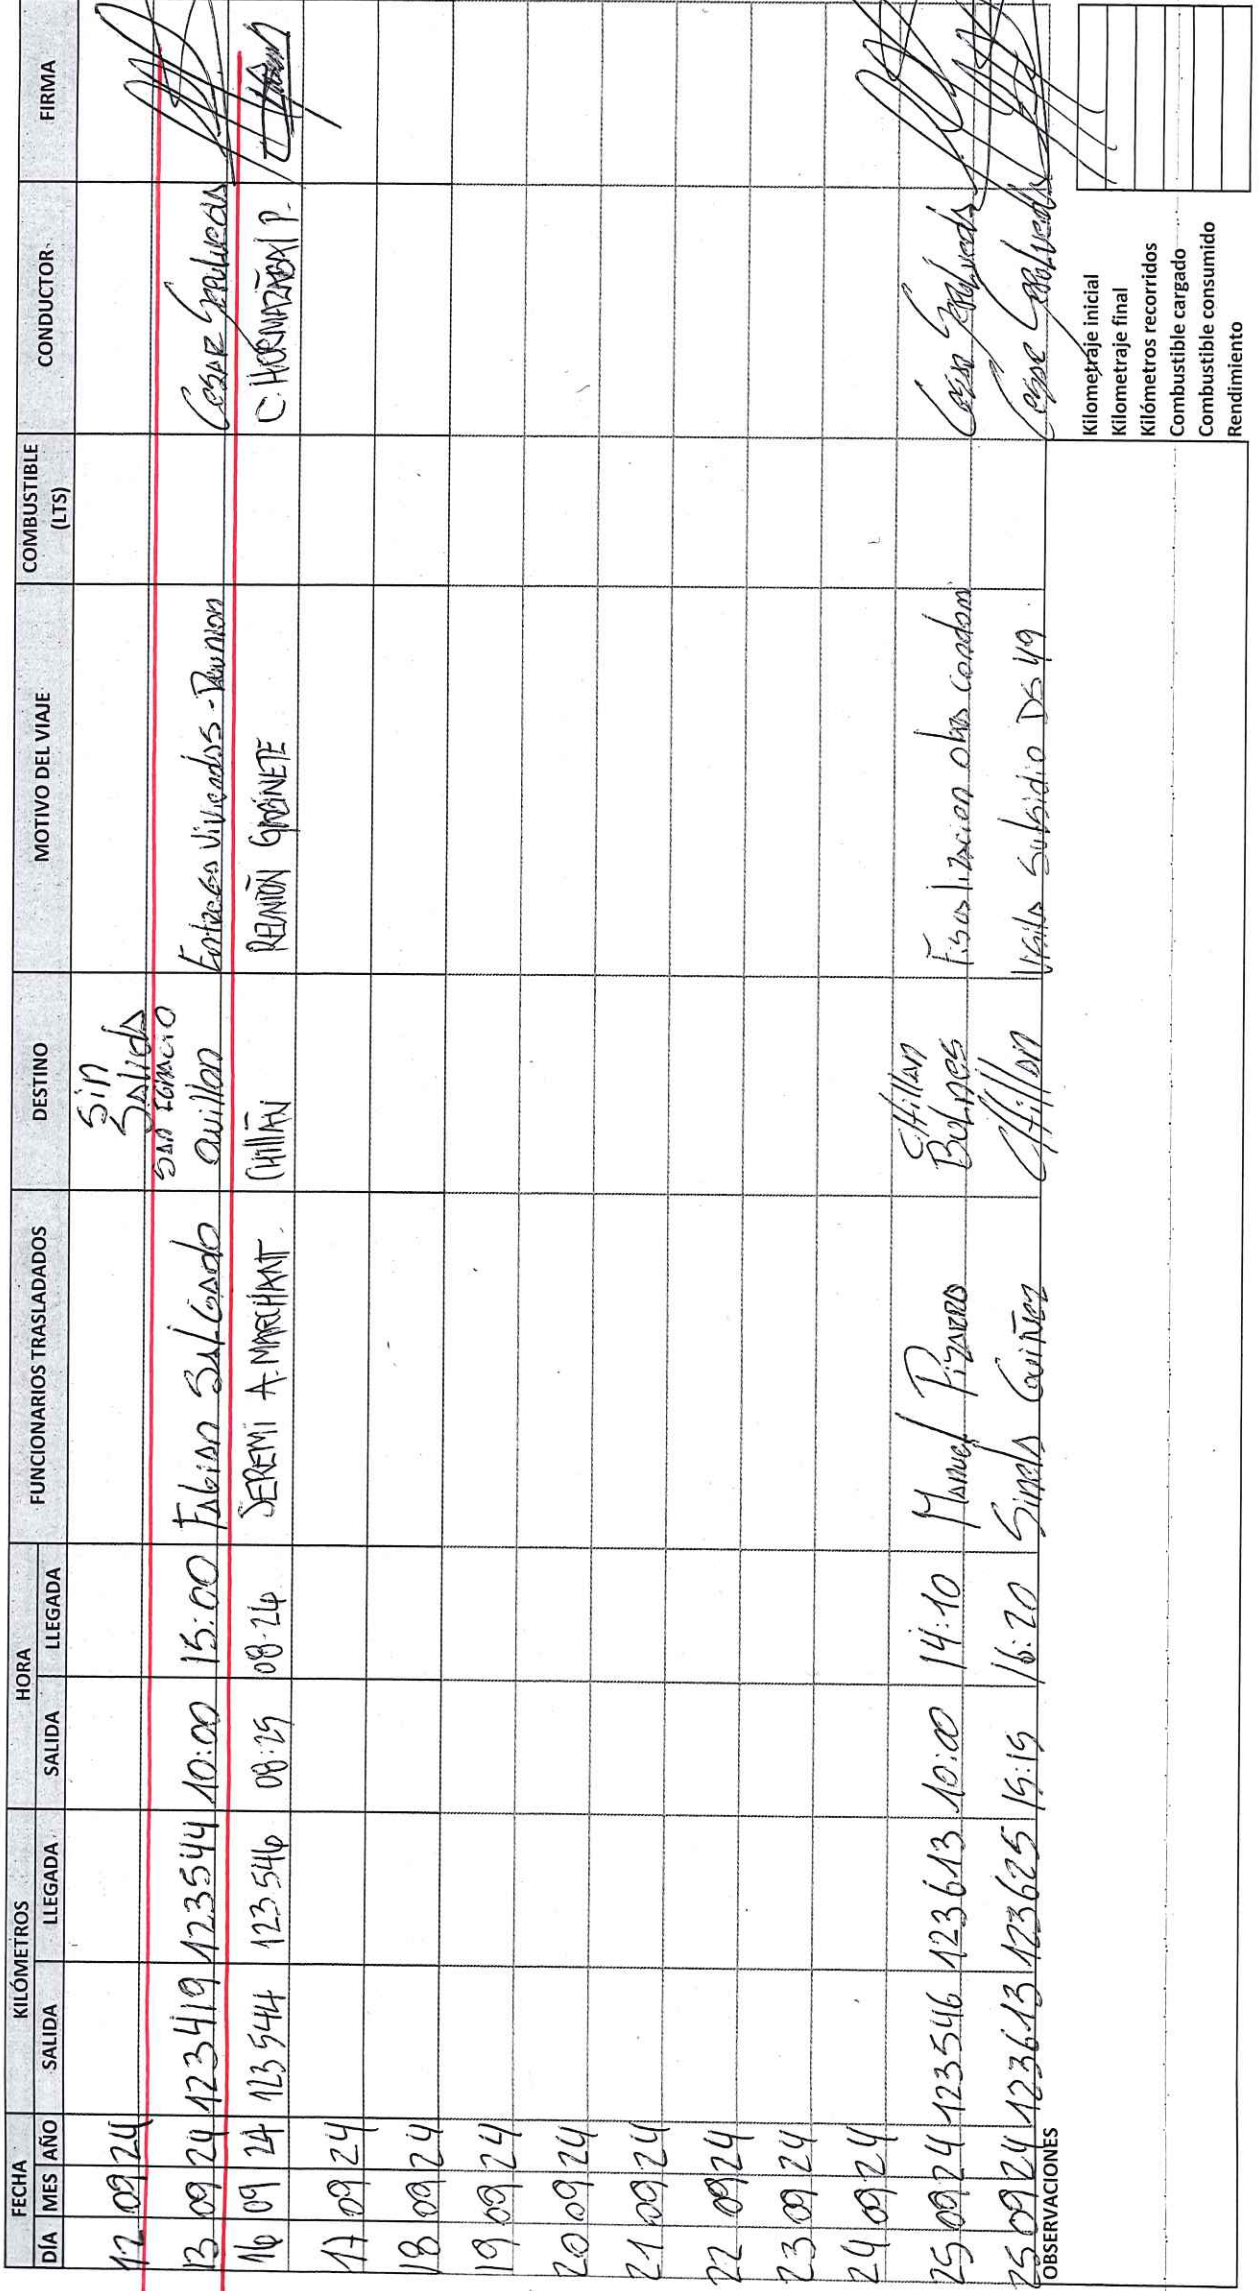 FECHA KILÓMETROS HORA FUNCIONARIOS TRASLADADOS DESTINO MOTIVO DEL VIAJE COMBUSTIBLE (LTS) CONDUCTOR FIRMA
DÍA MES AÑO SALIDA LLEGADA SALIDA LLEGADA
12 09 24 Sin Salida
13 09 24 123419 123544 10:00 15:00 Fabian Salgado San Ignacio Quillon Entregas Viviendas - Reunion Cesar Sepulveda
16 09 24 123544 123546 08:25 08:24 SEREMI A. MARCHANT. CHILLÁN REUNIÓN GABINETE C. HORMAZÁBAL P.
17 09 24
18 09 24
19 09 24
20 09 24
21 09 24
22 09 24
23 09 24
24 09 24
25 09 24 123546 123613 10:00 14:10 Manuel Pizarro Chillan Bulnes Fiscalizacion obras condom Cesar Sepulveda
25 09 24 123613 123625 15:15 16:20 Chillan Visita Subsidio DS 49. Cesar Sepulveda
OBSERVACIONES
Kilometraje inicial
Kilometraje final
Kilómetros recorridos
Combustible cargado
Combustible consumido
Rendimiento